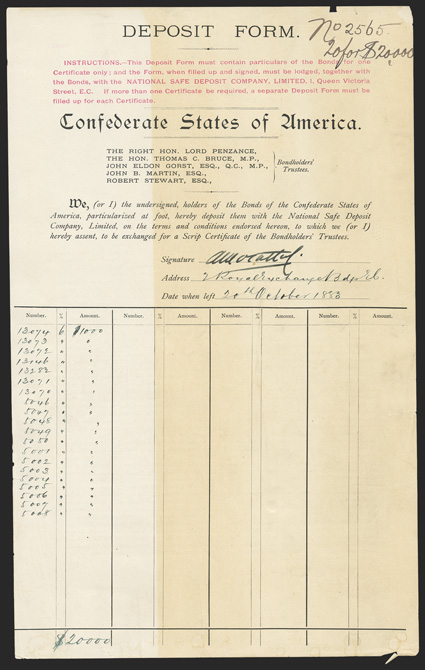 DEPOSIT FORM.
No 2565.
20 for $20,000
INSTRUCTIONS.—This Deposit Form must contain particulars of the Bonds for one
Certificate only; and the Form, when filled up and signed, must be lodged, together with
the Bonds, with the NATIONAL SAFE DEPOSIT COMPANY, LIMITED, 1, Queen Victoria
Street, E.C. If more than one Certificate be required, a separate Deposit Form must be
filled up for each Certificate.
Confederate States of America.
THE RIGHT HON. LORD PENZANCE,
THE HON. THOMAS C. BRUCE, M.P.,
JOHN ELDON GORST, ESQ., Q.C., M.P.,
JOHN B. MARTIN, ESQ.,
ROBERT STEWART, ESQ.,
Bondholders'
Trustees.
We, (or I) the undersigned, holders of the Bonds of the Confederate States of
America, particularized at foot, hereby deposit them with the National Safe Deposit
Company, Limited, on the terms and conditions endorsed hereon, to which we (or I)
hereby assent, to be exchanged for a Scrip Certificate of the Bondholders' Trustees.
Signature
Address 2 Royal Exchange Bdgs E.C.
Date when left 20th October 1883
Number. % Amount. Number. % Amount. Number. % Amount. Number. % Amount.
13074 6 $1000
13073 " "
13072 " "
13146 " "
13282 " "
13071 " "
13070 " "
5046 " "
5047 " "
5048 " "
5049 " "
5050 " "
5001 " "
5002 " "
5003 " "
5004 " "
5005 " "
5006 " "
5007 " "
5008 " "
$20000